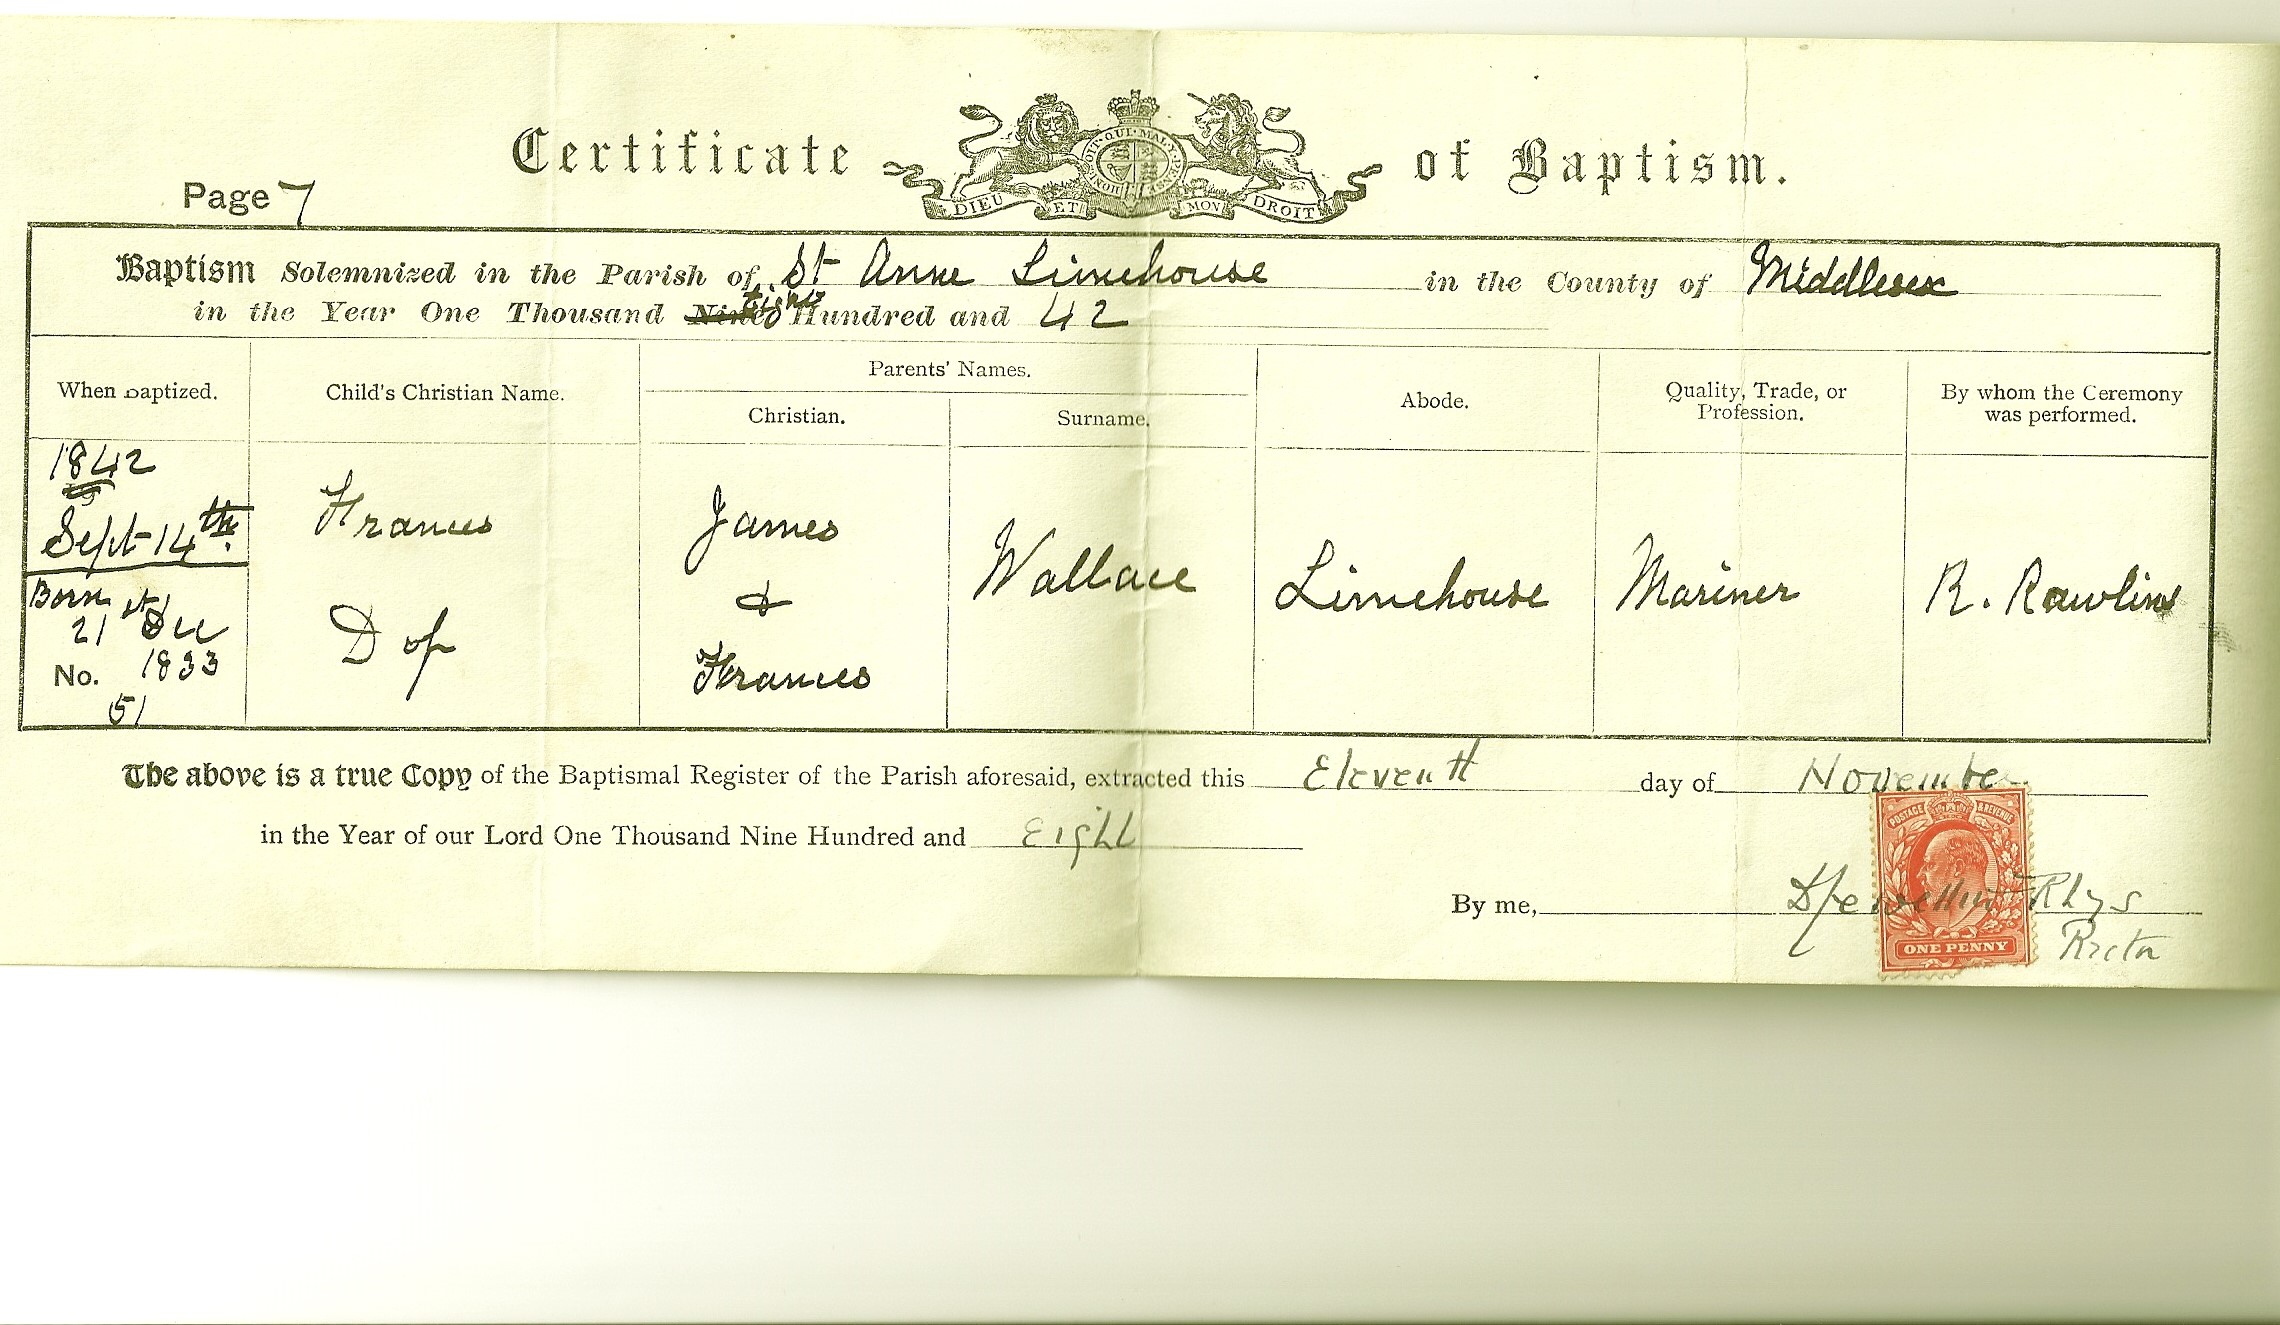 Certificate of Baptism.
HONI SOIT QUI MAL Y PENSE
DIEU ET MON DROIT
Page 7
Baptism Solemnized in the Parish of St Anne Limehouse in the County of Middlesex
Eight
in the Year One Thousand Nine Hundred and 42
When Baptized.
Child's Christian Name.
Parents' Names.
Christian.
Surname.
Abode.
Quality, Trade, or
Profession.
By whom the Ceremony
was performed.
1842
Sept 14th.
Born
21st Dec
1833
No.
51
Frances
D of
James
&
Frances
Wallace
Limehouse
Mariner
R. Rawlins
The above is a true Copy of the Baptismal Register of the Parish aforesaid, extracted this Eleventh day of November
in the Year of our Lord One Thousand Nine Hundred and Eight
POSTAGE REVENUE
By me, Rhys
ONE PENNY
Rector